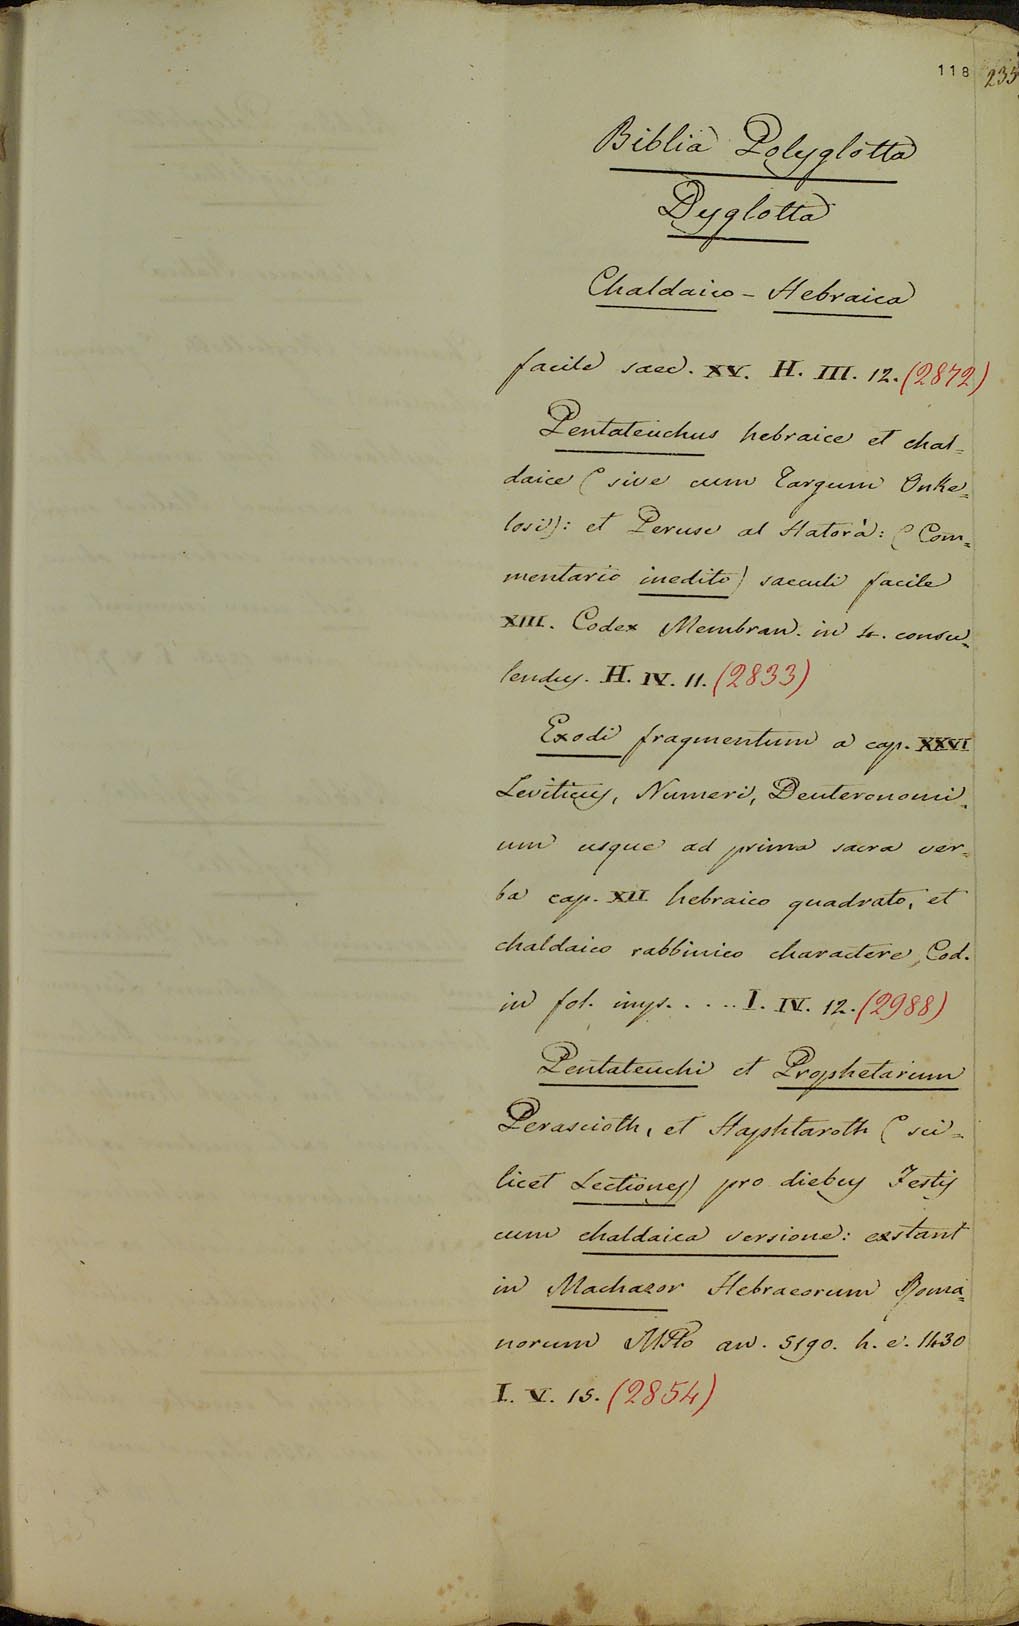 118 235
Biblia Polyglotta
Dyglotta
Chaldaico - Hebraica
facile saec. XV. H. III. 12. (2872)
Pentateuchus hebraice et chal=
daice (sive cum Targum Onke=
losi): et Peruse al Hatorà: (Com=
mentario inedito) saeculi facile
XIII. Codex Membran. in 4. consu=
lendus. H. IV. 11. (2833)
Exodi fragmentum a cap. XXVI
Leviticus, Numeri, Deuteronomi=
um usque ad prima sacra ver=
ba cap. XII hebraico quadrato, et
chaldaico rabbinico charactere, Cod.
in fol. inys. . . . . I. IV. 12. (2988)
Pentateuchi et Prophetarum
Perascioth, et Haphtaroth (sci=
licet Lectiones) pro diebus Festis
cum chaldaica versione: exstant
in Machazor Hebraeorum Roma=
norum MSto an. 5190. h. e. 1430
I. V. 15. (2854)